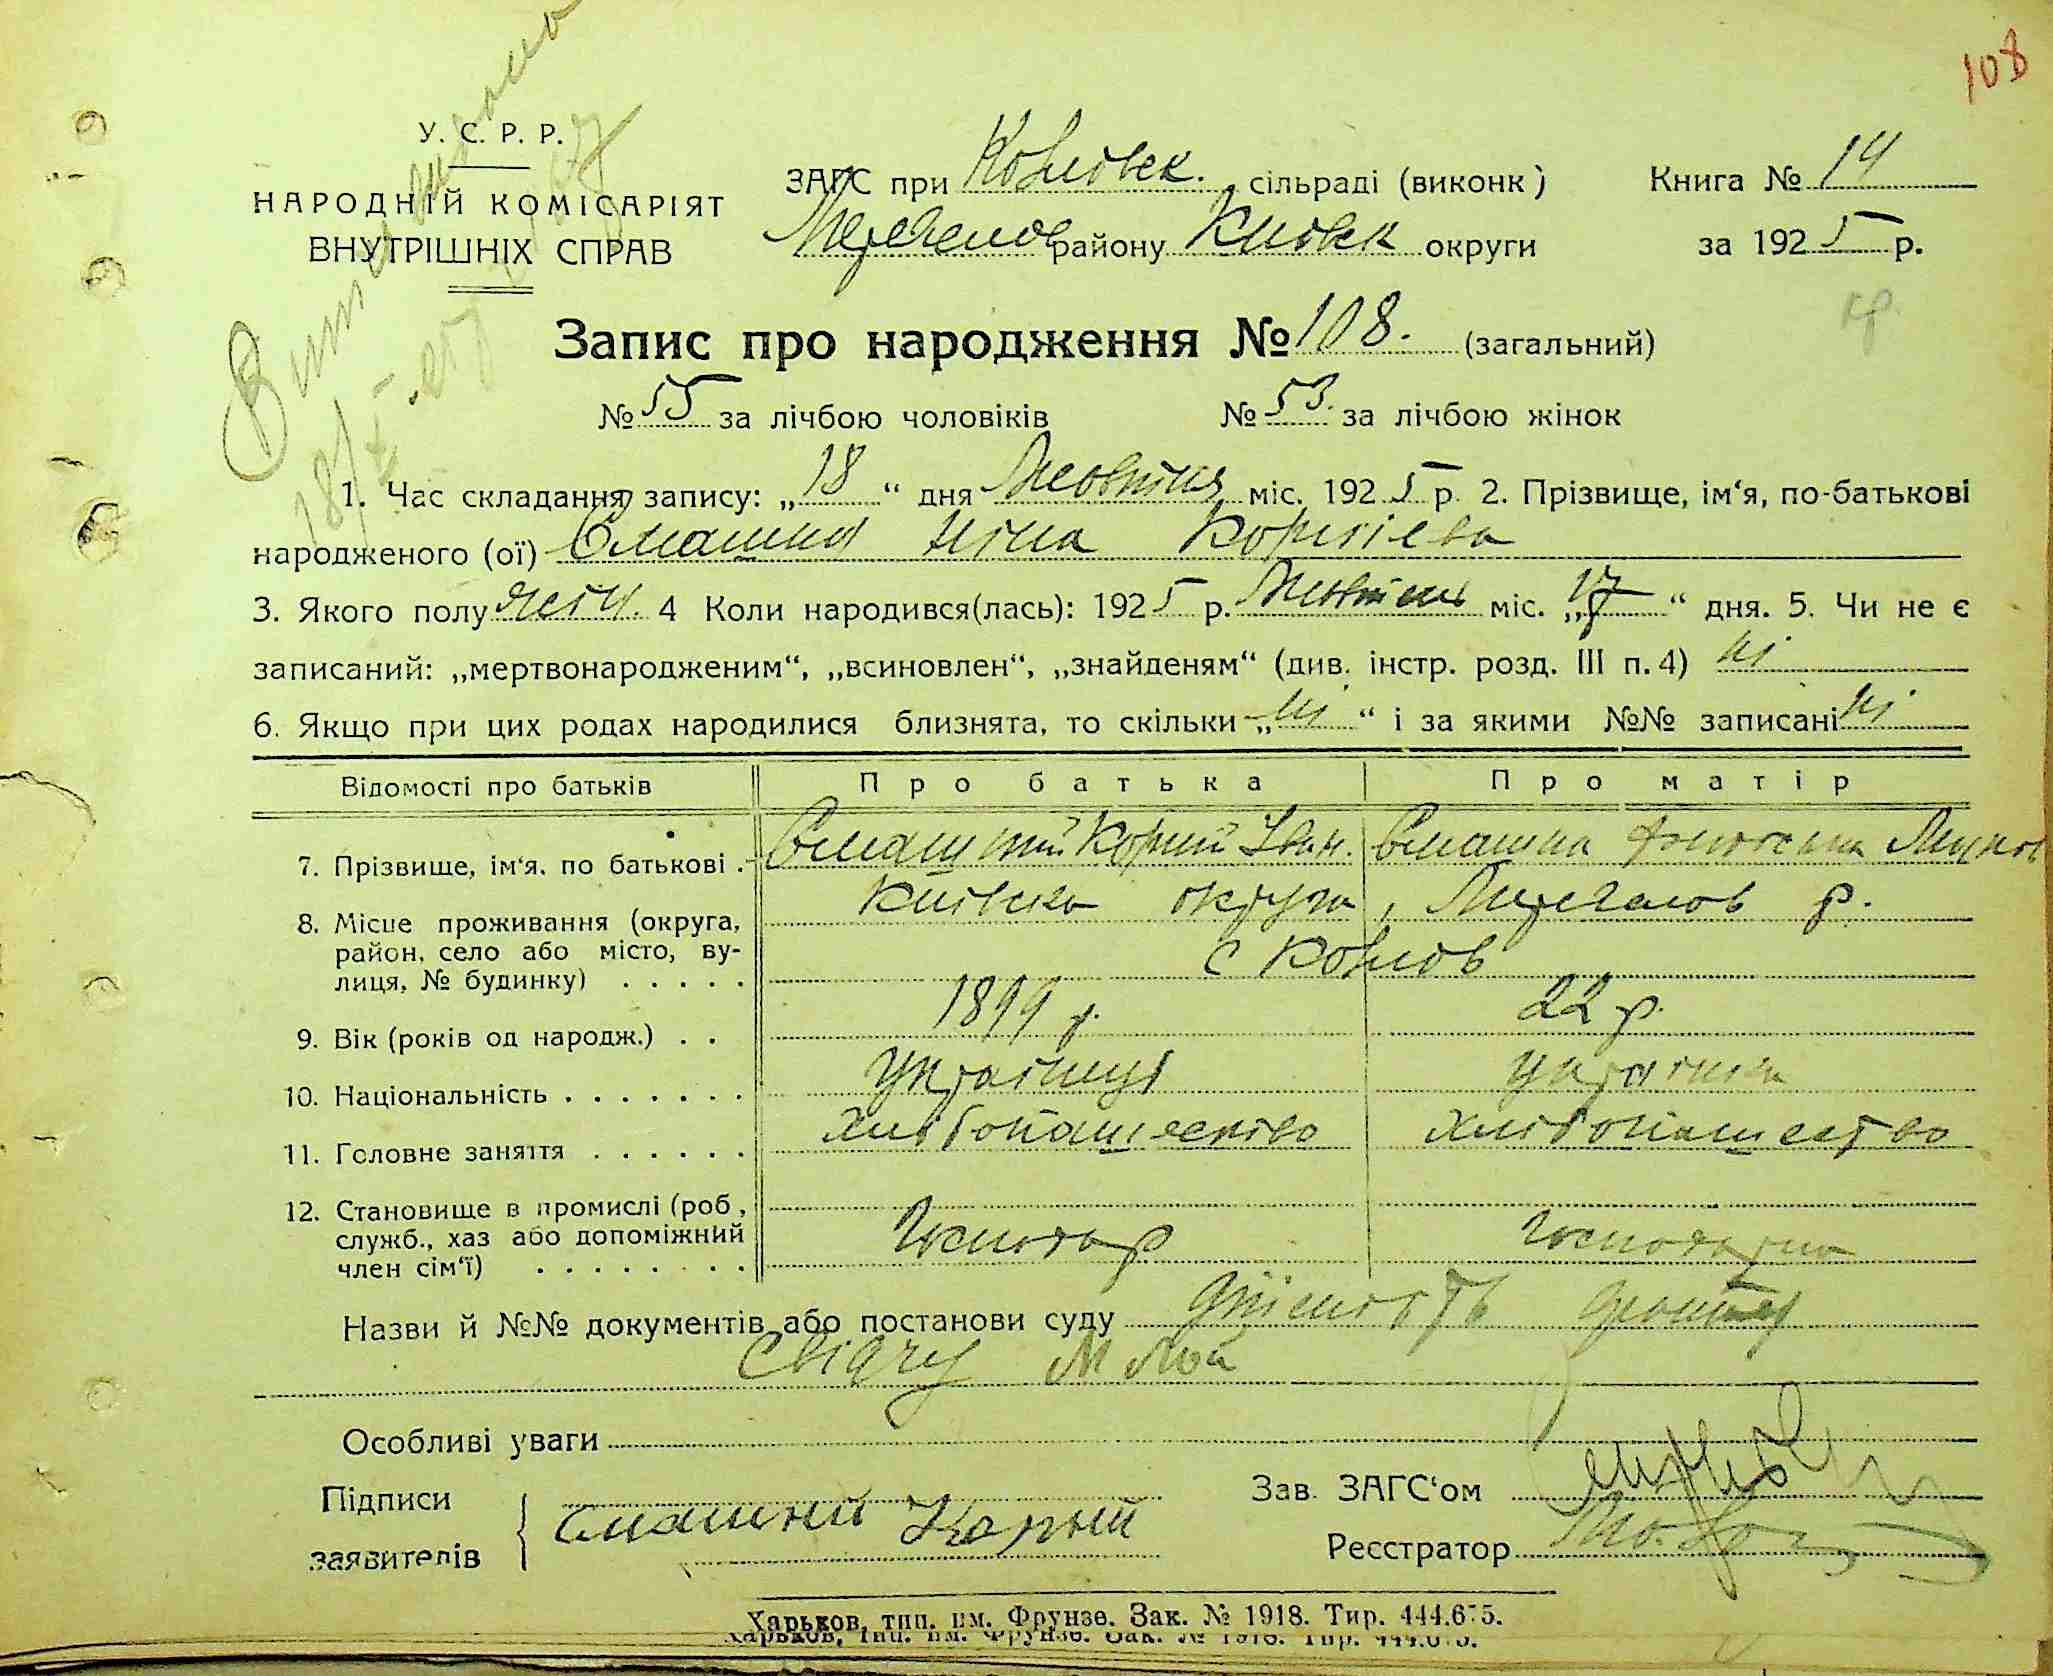 108
У. С. Р. Р.
НАРОДНІЙ КОМІСАРІЯТ
ВНУТРІШНІХ СПРАВ
ЗАГС при Козловск. сільраді (виконк)
району Київск округи
Книга № 14
за 1925 р.
Запис про народження № 108. (загальний)
№ 55 за лічбою чоловіків № 53. за лічбою жінок
1. Час складання запису: „18“ дня Жовтня міс. 1925 р. 2. Прізвище, ім‘я, по-батькові
народженого (ої) Смашна Ніна Корніїева
3. Якого полу жін. 4 Коли народився(лась): 1925 р. Жовтня міс. „17“ дня. 5. Чи не є
записаний: „мертвонародженим“, „всиновлен“, „знайденям“ (див. інстр. розд. III п. 4) ні
6. Якщо при цих родах народилися близнята, то скільки „ні“ і за якими №№ записані ні
Відомості про батьків Про батька Про матір
7. Прізвище, ім‘я, по батькові . Смашний Корній Іван. Смашна
8. Місце проживання (округа, Київска округа, р.
район, село або місто, ву- с Козлов
лиця, № будинку) . . . . .
9. Вік (років од народж.) . . 1899 р. 22 р.
10. Національність . . . . . . . Українця Українка
11. Головне заняття . . . . . . Хлібопашество Хлібопашество
12. Становище в промислі (роб.,
служб., хаз або допоміжний Господар Господарка
член сім‘ї) . . . . . . . .
Назви й №№ документів або постанови суду
Свідчу
Особливі уваги
Підписи
заявителів Смашний Корний
Зав. ЗАГС‘ом
Реєстратор
Харьков, тип. им. Фрунзе. Зак. № 1918. Тир. 444.675.